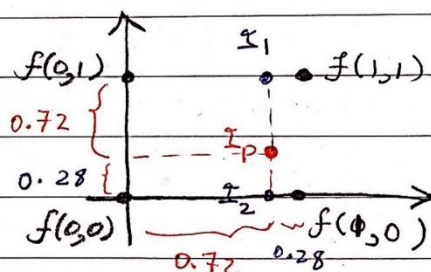 I₁
f(0,1) f(1,1)
0.72
I_P
0.28
I₂
f(0,0) f(1,0)
0.72 0.28